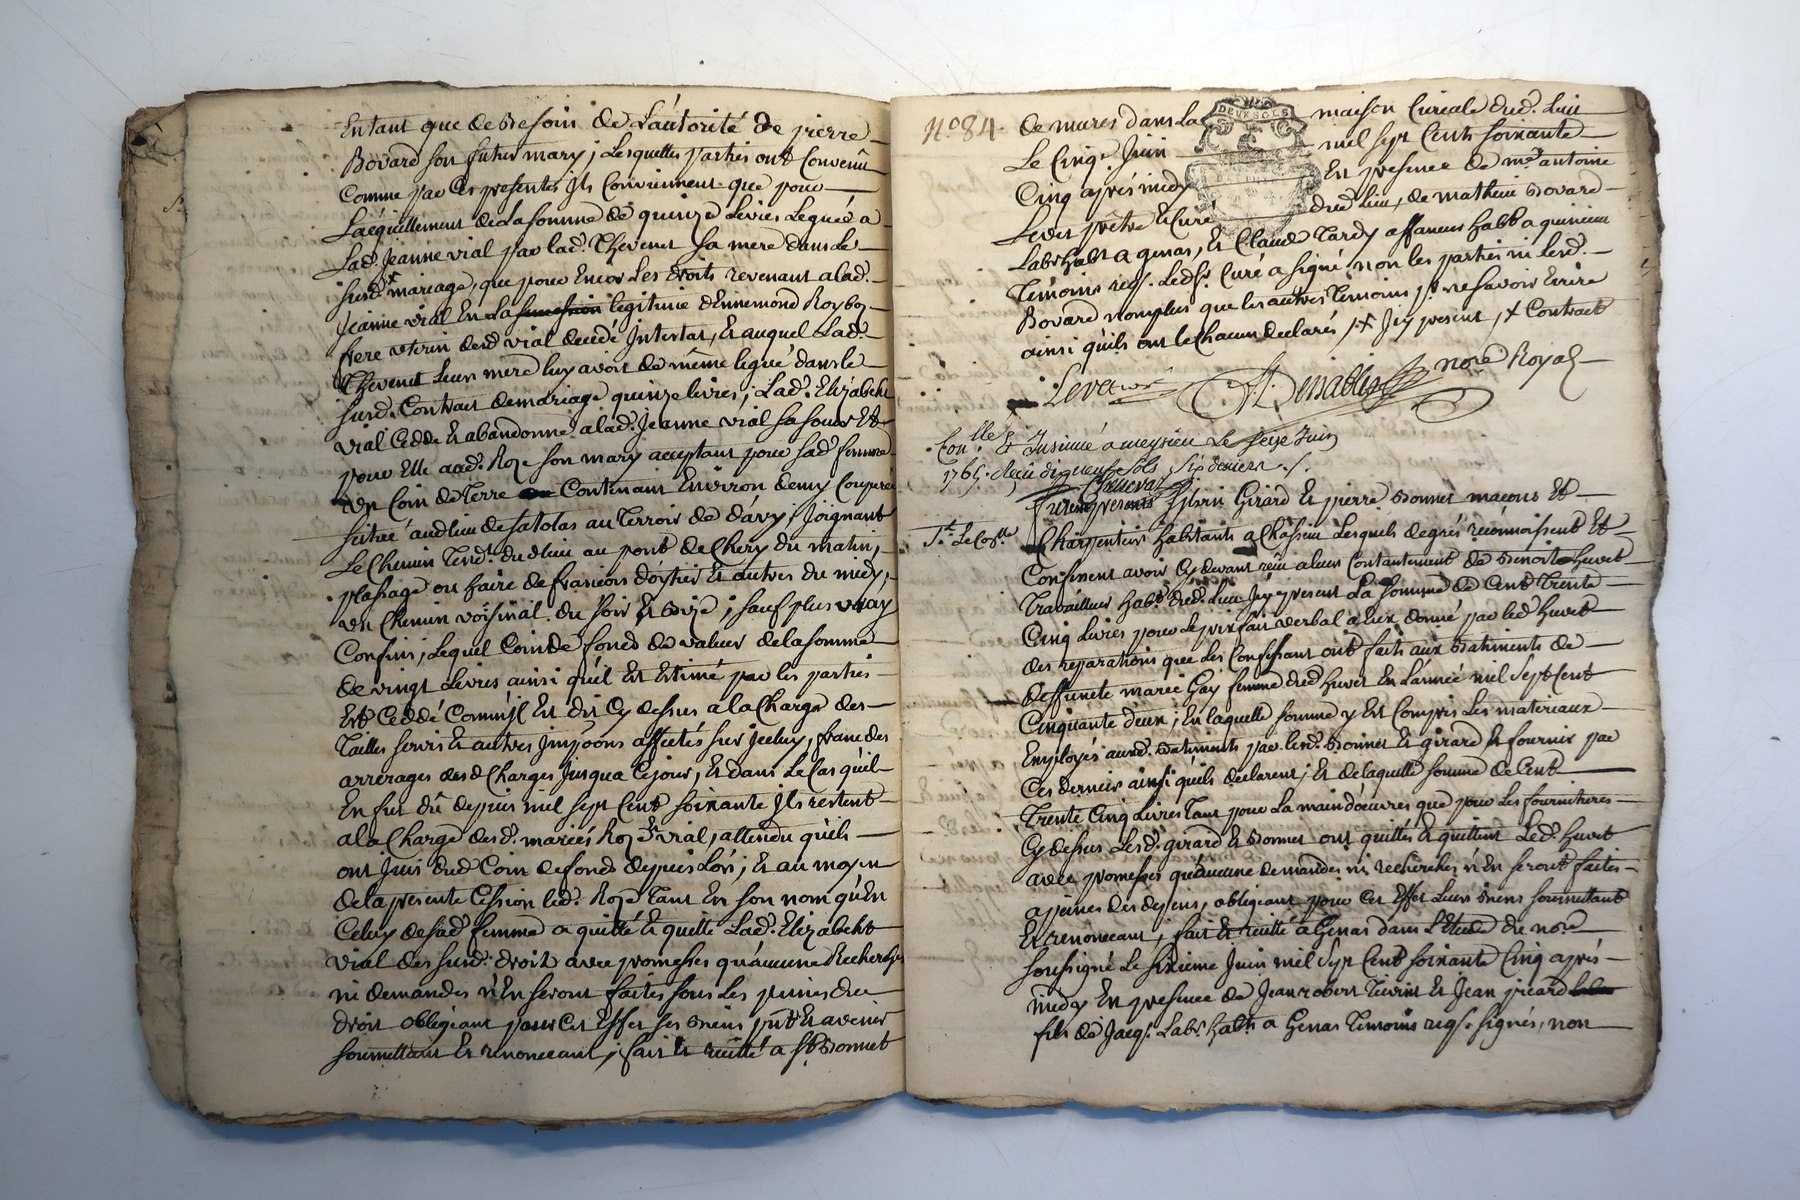 En tant que de Besoin de L'autorité de pierre
Bovard son futur mary ; Lesquelles parties ont Convenu
Comme par Ces presentes Ils Conviennent que pour
L'acquittement de La somme de quinze Livres Leguée a
Lad. Jeanne vial par lad. Thevenet sa mere dans le
susd. mariage, que pour Encor Les droits revenant a lad.
Jeanne vial En La legitime d'Ennemond Roybo
frere uterin desd. vial decedé Intestat, Et auquel Lad.
Thevenet Leur mere luy avoit de même legué dans le
susd. Contrat de mariage quinze livres ; Lad. Elizabeht
vial Cedde Et abandonne a lad. Jeanne vial sa soeur Et
pour Elle aud. Roze son mary acceptant pour sad. femme
un Coin de Terre Contenant Environ demy Couperé
scitué aud. lieu de satolas au Terroir de d'avy, Joignant
Le Chemin Tend. dud. lieu au pont de Chery du matin,
passage ou haire de françois d'ostier Et autres du midy,
un Chemin voisinal du soir Et Bize ; sauf plus vray
Confins ; Lequel Coin de fond de valeur de la somme
de vingt Livres ainsi qu'il Est Estimé par les parties
Est Ceddé Comm'il Est dit Cy dessus a la Charge des
Tailles servis Et autres Imp͠ons affectés sur Iceluy, franc des
arrerages desd. Charges Jusqu'a Ce jour, Et dans Le Cas qu'il
En fut dû depuis mil sept Cent soixante Ils restent
a la Charge desd. mariés Roze Et vial, attendu qu'ils
ont Joui dud. Coin de fond depuis Lors ; Et au moyen
de la presente Cession led. Roze Tant En son nom qu'En
Celuy de sad. femme a quitté Et quitte Lad. Elizabeht
vial des susd. droit avec promesses qu'aucune Recherches
ni demandes n'En seront faites sous Les peines du
droit obligeant pour Cet Effet ses Biens pnt Et avenir
soumettant Et renonceant ; fait Et recitté a St Bonnet
N.o 84.
DEUX SOLS
de mures dans La maison Curiale dud. Lieu
Le Cinq.e Juin mil sept Cents soixante
Cinq après midy En presence de m.re antoine
Levet prêtre Et Curé dud. Lieu, de mathieu Bovard
Lab.r hab.t a genas, Et Claude Tardy affaneur hab.t a quincieu
Temoins req.s Led. S.r Curé a signé, non les parties ni Led.
Bovard non plus que les autres Temoins p.r ne savoir Ecrire
ainsi qu'ils ont le Chacun declarés /+ Icy present, /+ Contract
Levet curé Desvablis no.re Royal
Con.lle Et Insinué a meyzieu Le seze Juin
1765. Reçu dix neuf sols Six deniers ./.
Furent presents Girard Et pierre Bonnet maçons Et
J.t Le Con.lle
Charpentiers habitants a Chassieu Lesquels de grés reconnoissent Et
Confessent avoir Cy devant reçu a leur Contantement de Benoit Huvet
Travailleur hab.t dud. Lieu Icy present La somme de Cent Trente
Cinq Livres pour Le prix fait verbal a Eux donné par led. Huvet
des reparations que Les Confessant ont faits aux Batiments de
deffunte marie Gay femme dud. Huvet En L'année mil Sept Cent
Cinquante deux ; En laquelle somme y Est Compris Les materiaux
Employés auxd. Batiments par lesd. Bonnet Et girard Et fournis par
Ces derniers ainsi qu'ils declarent ; Et de laquelle somme de Cent
Trente Cinq Livres Tant pour La main d'oeuvres que pour Les fournitures
Cy dessus Lesd. girard Et Bonnet ont quittés Et quittent Led. Huvet
avec promesses qu'aucune demandes ni recherches n'En seront faites
a peines des depens, obligeant pour Cet Effet Leurs Biens soumettant
Et renonceant ; fait Et recitté a Genas dans L'Etude du no.re
soussigné Le sixieme Juin mil Sept Cent soixante Cinq après
midy En presence de Jean robert Et Jean picard
fils de Jacq.s Lab.r hab.ts a Genas Temoins req.s signés, non